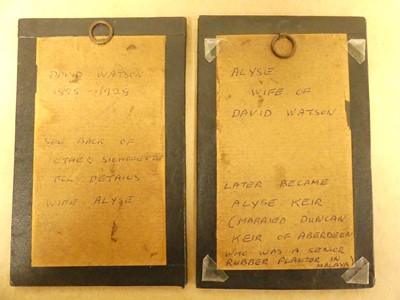 DAVID WATSON
1895 - 1928
SEE BACK OF
OTHER SILHOUETTE
FOR DETAILS
WIFE ALYSE
ALYSE
WIFE OF
DAVID WATSON
LATER BECAME
ALYSE KEIR
(MARRIED DUNCAN
KEIR OF ABERDEEN
WHO WAS A SENIOR
RUBBER PLANTER IN
MALAYA)